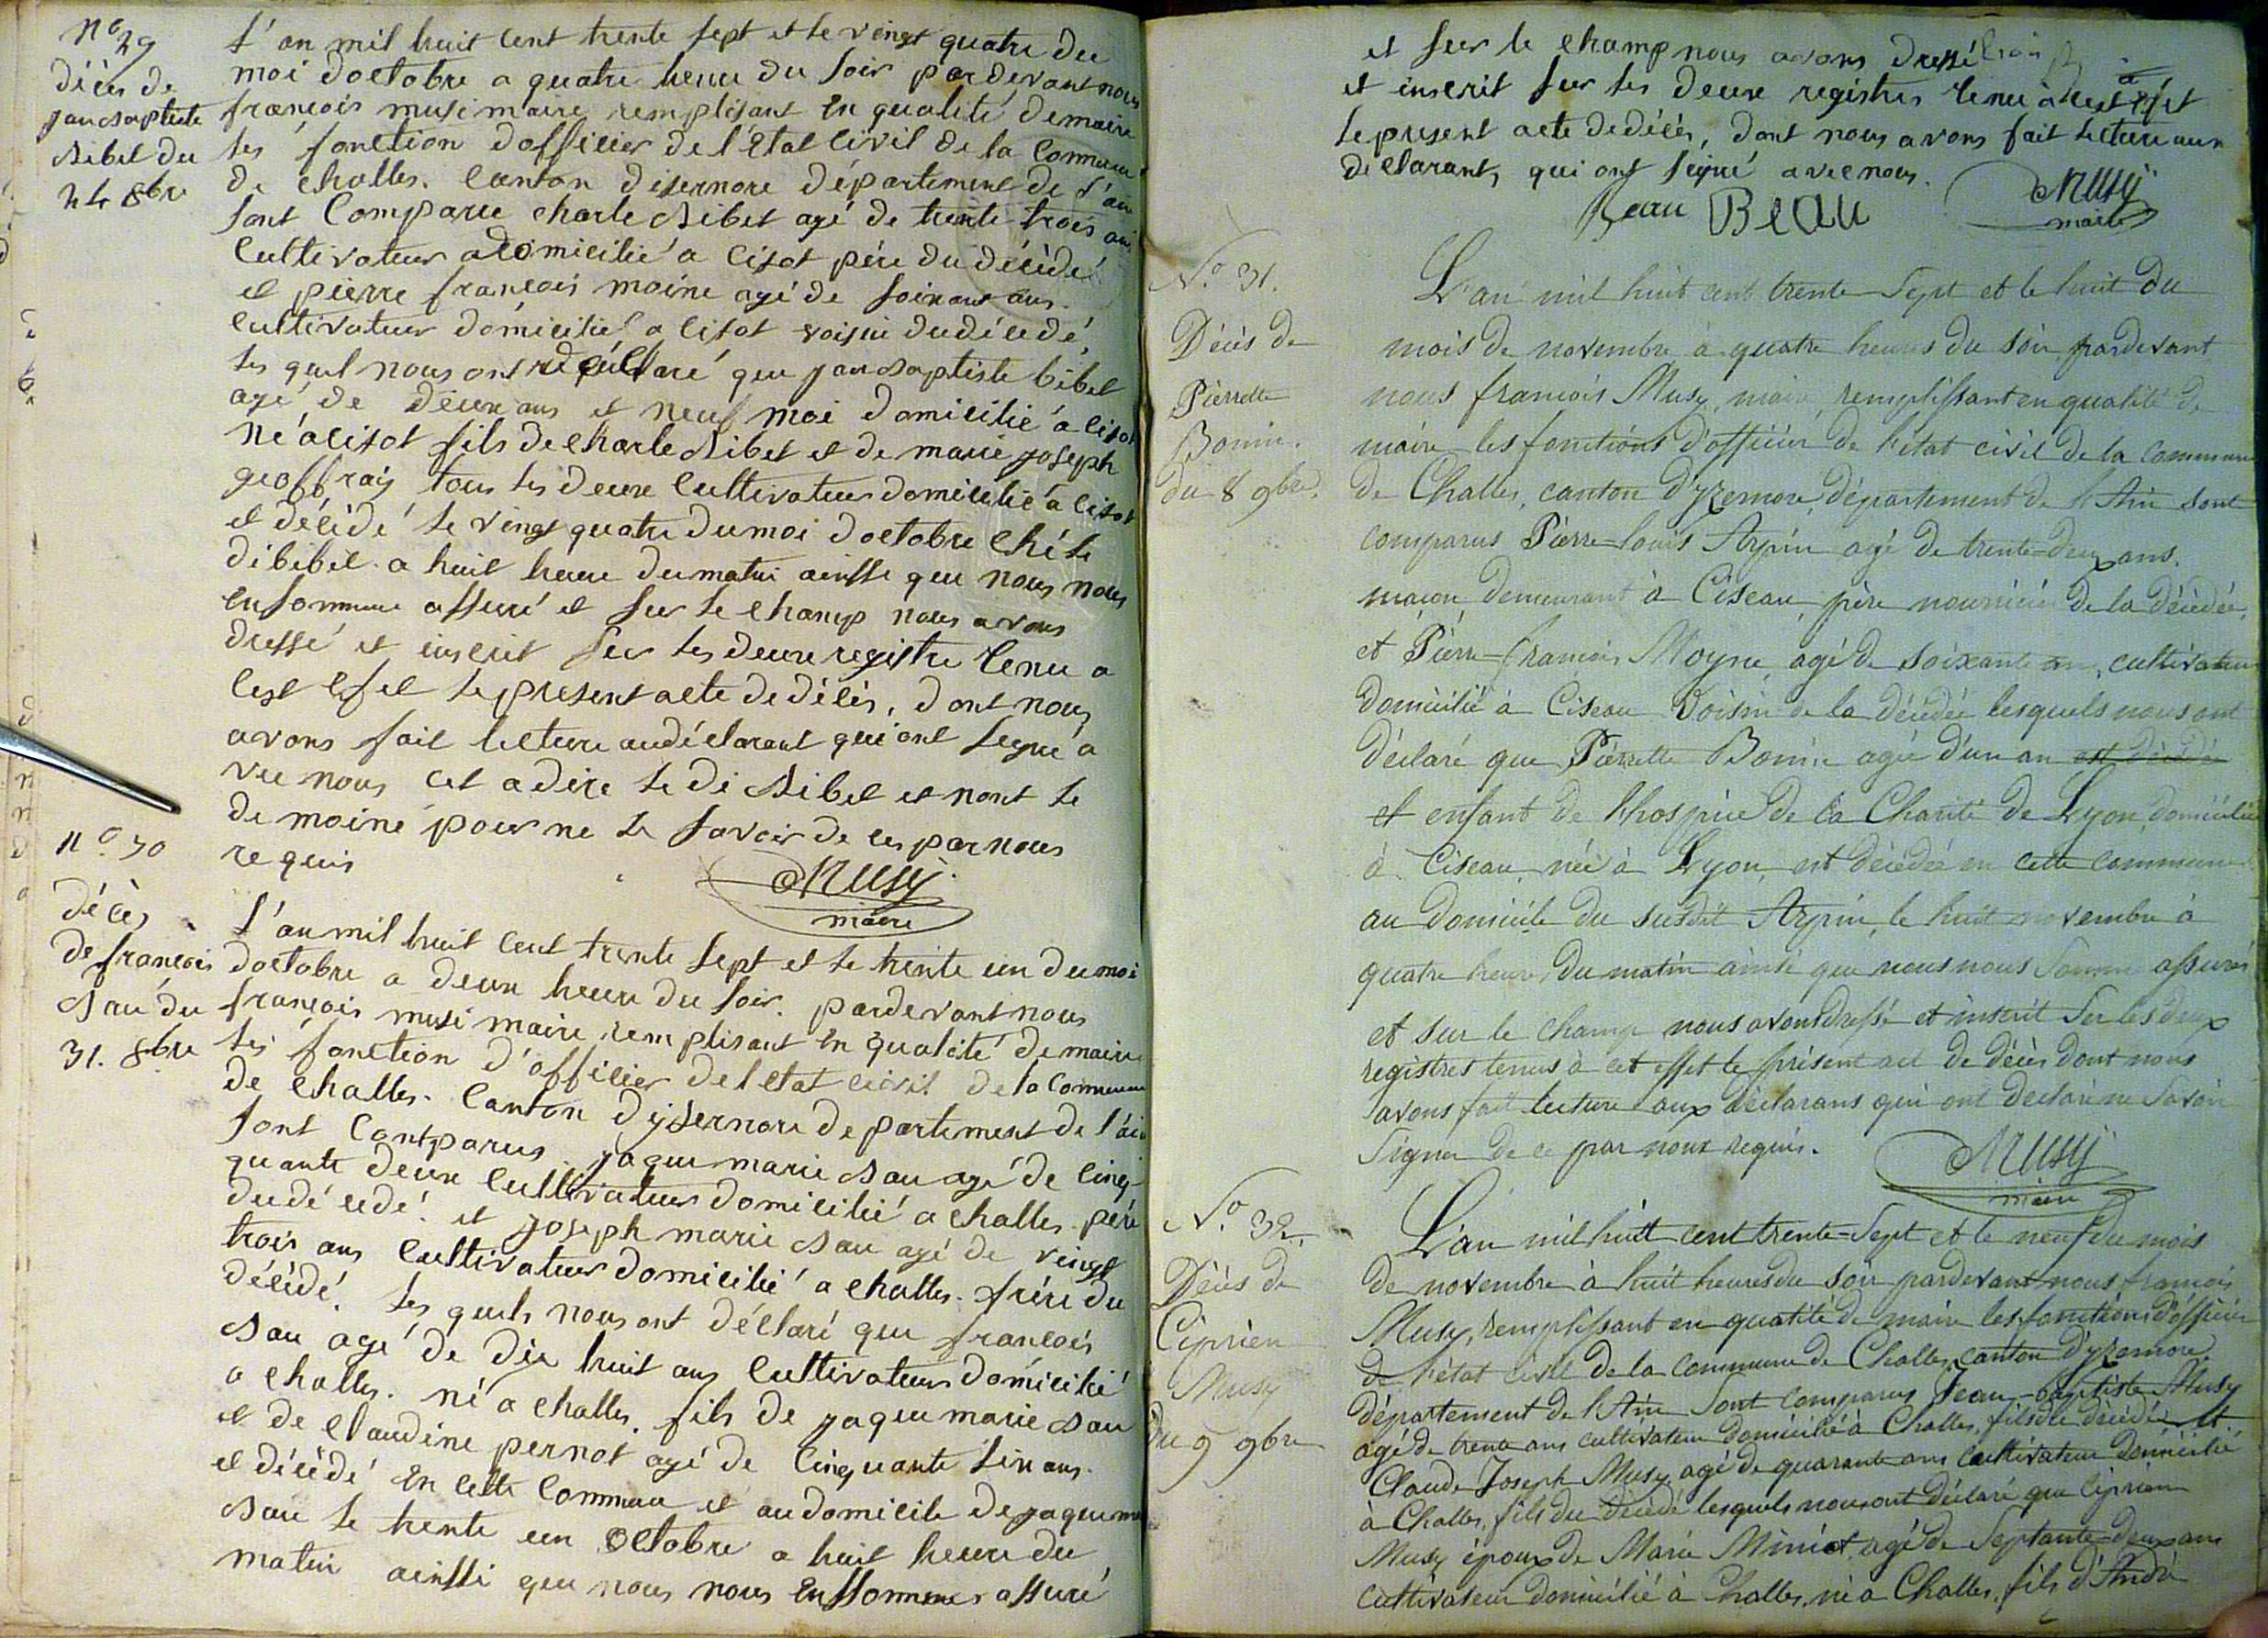 n.o 29
décès de
jean baptiste
Bibet du
24 8bre
L'an mil huit cent trente sept et le vingt quatre du
moi d'octobre a quatre heure du soir pardevant nous
françois musi maire remplisant en qualité de maire
les fonction d'officier de l'état civil de la Commune
de challes. Canton disernore département de l'ain
sont Comparu charle Bibet agé de trente trois ans
Cultivateur adomicilié a cisot père du décèdé
et pierre françois moine agé de soixante ans.
Cultivateur domicilié a cisot voisin du décedé,
les quel nous ont déclaré que jean baptiste bibet
agé de deux ans et neuf moi domicilié a cisot
né a cisot fils de charle Bibet et de marie joseph
geoffray tous les deux Cultivateur domicilié a cisot
et décédé le vingt quatre du moi d'octobre ché le
di bibet. a huit heure du matin ainssi que nous nous
en somme assuré et sur le champ nous avons
dressé et inscrit sur les deux registre tenu a
cest effet le present acte de décès, dont nous
avons fait lecture au déclarant qui ont signé a
vec nous cet a dire le di Bibet et nont le
de moine pour ne le savoir de ces par nous
requis
Musy
maire
n.o 30
décès
de françois
Bau du
31. 8bre
L'an mil huit cent trente sept et le trente un du moi
doctobre a deux heure du soir. pardevant nous
françois musi maire remplisant en qualité de maire
les fonction d'officier de l'etat civil de la Commune
de challes. Canton dysernore departement de l'ain
sont Contparus jaque marie Bau agé de cinq
quante deux Cultivateur domicilié a challes. père
du décedé. et joseph marie Bau agé de vingt
trois ans Cultivateur domicilié a challes. frère du
décédé. les quels nous ont déclaré que françois
Bau agé de dix huit ans Cultivateur domicilié
a challes. né a challes. fils de jaque marie Bau
et de claudine pernot agé de Cinquante six ans.
et décédé en cette Commune et au domicile de jaque m
Bau le trente un octobre a huit heure du
matin ainssi que nous nous en ssommes assuré
et sur le champ nous avons dressé
et inscrit sur les deux registres tenu a cest effet
le present acte de décès, dont nous avons fait lecture aux
déclarant, qui ont signé avec nous.
Beau BEAU
Musy
maire
N.o 31.
Décès de
Pierrette
Bonin.
du 8 9bre.
L'an mil huit cent trente-sept et le huit du
mois de novembre à quatre heures du soir pardevant
nous françois Musy, maire, remplissant en qualité de
maire les fonctions d'officier de l'état civil de la commune
de Challes, canton d'yzernore, département de l'Ain sont
comparus Pierre-louis Arpin agé de trente-deux ans.
maçon, demeurant à Ciseau, père nourricier de la décédée,
et Pierre-françois Moyne, agé de soixante ans, cultivateur
domicilié à Ciseau voisin de la décédée lesquels nous ont
déclaré que Pierrette Bonin agée d'un an est décédée
et enfant de l'hospice de la Charité de Lyon, domiciliée
à Ciseau, née à Lyon, est décédée en cette commune
au domicile du susdit Arpin, le huit novembre à
quatre heures du matin ainsi que nous nous somme assurés
et sur le champ nous avons dressé et inscrit sur les deux
registres tenus à cet effet le présent act de décès dont nous
avons fait lecture aux déclarans qui ont déclaré ne savoir
signer de ce par nous requis.
Musy
maire
N.o 32.
Décès de
Ciprien
Musy
du 9 9bre
L'an mil huit cent trente-sept et le neuf du mois
de novembre à huit heures du soir pardevant nous françois
Musy, remplissant en qualité de maire les fonctions d'officier
de l'état civil de la commune de Challes, canton d'yzernore
département de l'Ain sont comparus Jean-baptiste Musy
agé de trente ans cultivateur domicilié à Challes, fils de décédé et
Claude Joseph Musy agé de quarante ans cultivateur domicilié
à Challes, fils du décédé lesquels nous ont déclaré que Ciprien
Musy époux de Marie Miniot, agé de septante-deux ans
cultivateur domicilié à Challes, né à Challes, fils d'André